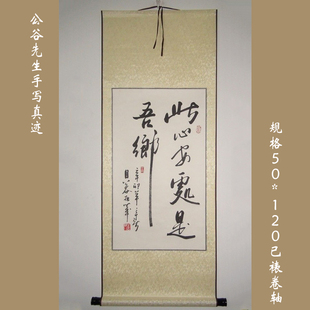 公谷先生手写真迹
此心安處是
吾鄉
辛卯年
规格50*120已裱卷轴